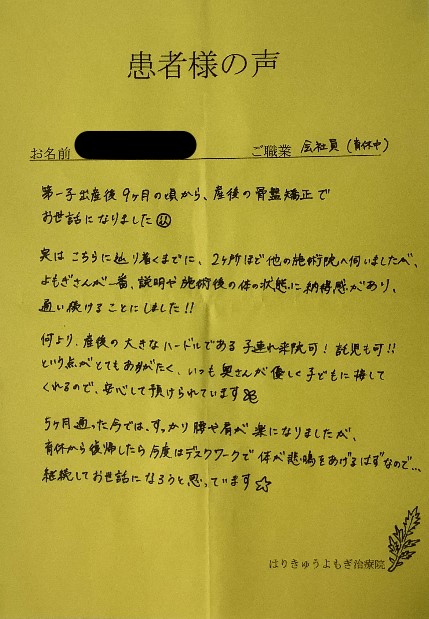 患者様の声
お名前 ご職業 会社員(育休中)
第一子出産後9ヶ月の頃から、産後の骨盤矯正で
お世話になりました
実は こちらに辿り着くまでに、2ヶ所ほど他の施術院へ伺いましたが、
よもぎさんが一番、説明や施術後の体の状態に納得感があり、
通い続けることにしました!!
何より、産後の大きなハードルである 子連れ来院可!託児も可!!
という点がとてもありがたく、いつも奥さんが優しく子どもに接して
くれるので、安心して預けられています
5ヶ月通った今では、すっかり腰や肩が楽になりましたが、
育休から復帰したら今度はデスクワークで体が悲鳴をあげるはずなので…、
継続してお世話になろうと思っています☆
はりきゅうよもぎ治療院